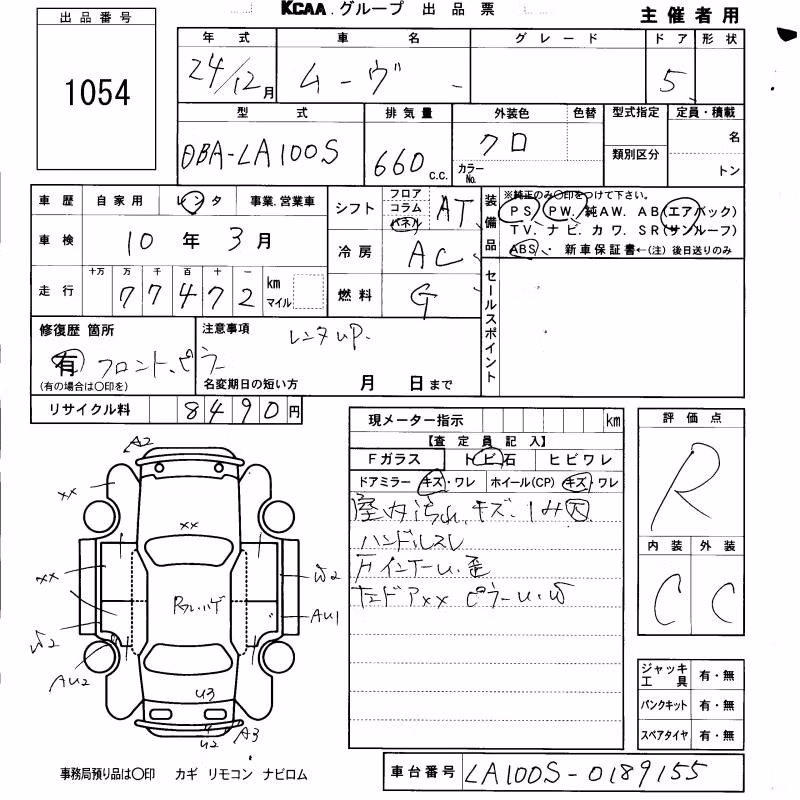 KCAA.グループ 出品票
主催者用
出品番号
1054
年式 車名 グレード ドア 形状
24/12月 ムーヴ 5
型式 排気量 外装色 色替 型式指定 定員・積載
DBA-LA100S 660 c.c. クロ カラーNo. 類別区分 名 トン
車歴 自家用 レンタ 事業.営業車
車検 10年3月
走行 十万 万 千 百 十 一
77472 km マイル
シフト フロア コラム パネル AT
冷房 AC
燃料 G
装備品 ※純正のみ○印をつけて下さい。
PS. PW. 純AW. AB(エアバック)
TV. ナビ. カワ. SR(サンルーフ)
ABS・ 新車保証書←(注)後日送りのみ
セールスポイント
修復歴 箇所
有 フロント.ピラー
(有の場合は○印を)
注意事項
レンタup.
名変期日の短い方 月 日まで
リサイクル料 8490円
現メーター指示 km
【査定員記入】
Fガラス トビ石 ヒビワレ
ドアミラー キズ・ワレ ホイール(CP) キズ・ワレ
室内汚れ.キズ.
ハンドルスレ
インナーu.歪
ドアxx ピラーu.w
評価点
R
内装 外装
C C
A2
xx
xx
xx
W2
W2
AU1
AU2
Rフル.ハゲ
U3
U2
A3
ジャッキ工具 有・無
パンクキット 有・無
スペアタイヤ 有・無
事務局預り品は○印 カギ リモコン ナビロム
車台番号 LA100S-0189155